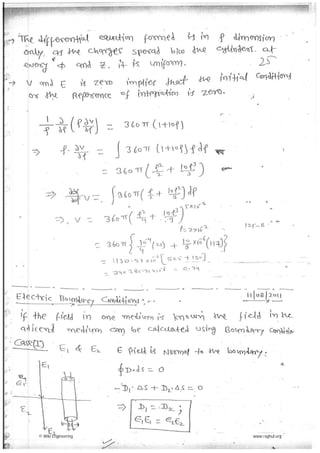 → The differential equation formed is in ρ dimension
only, as the charges spread b/w the cylinders. at
every Φ and z. it is uniform.
25
→ V and E is zero implies that the initial conditions
or the Reference of integration is zero.
1/ρ ∂/∂ρ (ρ ∂V/∂ρ) = 360π (1+10ρ)
⇒ ρ. ∂V/∂ρ = ∫ 360π (1+10ρ) ρ dρ
= 360π (ρ²/2 + 10ρ³/3)
⇒ V = ∫ 360π (ρ/2 + 10ρ²/3) dρ
⇒ V = 360π (ρ²/4 + 10ρ³/9) 5×10⁻²
ρ=2×10⁻²
= 360π { 10⁻⁴/4 (21) + 10/9 ×10⁻⁶ (117) }
Electric Boundary Conditions:-
11/08/2011
if the field in one medium is known the field in the
adjcend medium can be calculated using Boundary Conditio
Case(1) E₁ & E₂ E field is Normal to the boundary:
∮D.ds = 0
-D₁. ΔS + D₂. ΔS = 0
⇒ D₁ = D₂ ;
ε₁E₁ = ε₂E₂
E₁
E₂
© Wiki Engineering
www.raghul.org